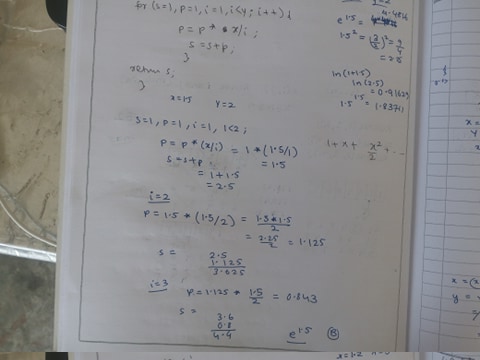 for (s=1, p=1, i=1, i<y; i++) {
p = p * x/i;
s = s+p;
}
return s;
}
x=1.5 y=2
s=1, p=1, i=1, 1<2;
p = p * (x/i) = 1 * (1.5/1)
= 1.5
s = s+p
= 1+1.5
= 2.5
i=2
p = 1.5 * (1.5/2) = 1.5*1.5/2
= 2.25/2 = 1.125
s = 2.5
1.125
3.625
i=3 p = 1.125 * 1.5/2 = 0.843
s = 3.6
0.8
4.4
e^1.5 B
4.4816
e^1.5 =
1.5^2 = (3/2)^2 = 9/4
ln(1+1.5)
ln(2.5)
= 0.91629
1.5^1.5 = 1.83711
1+x+ x^2/2 + ...